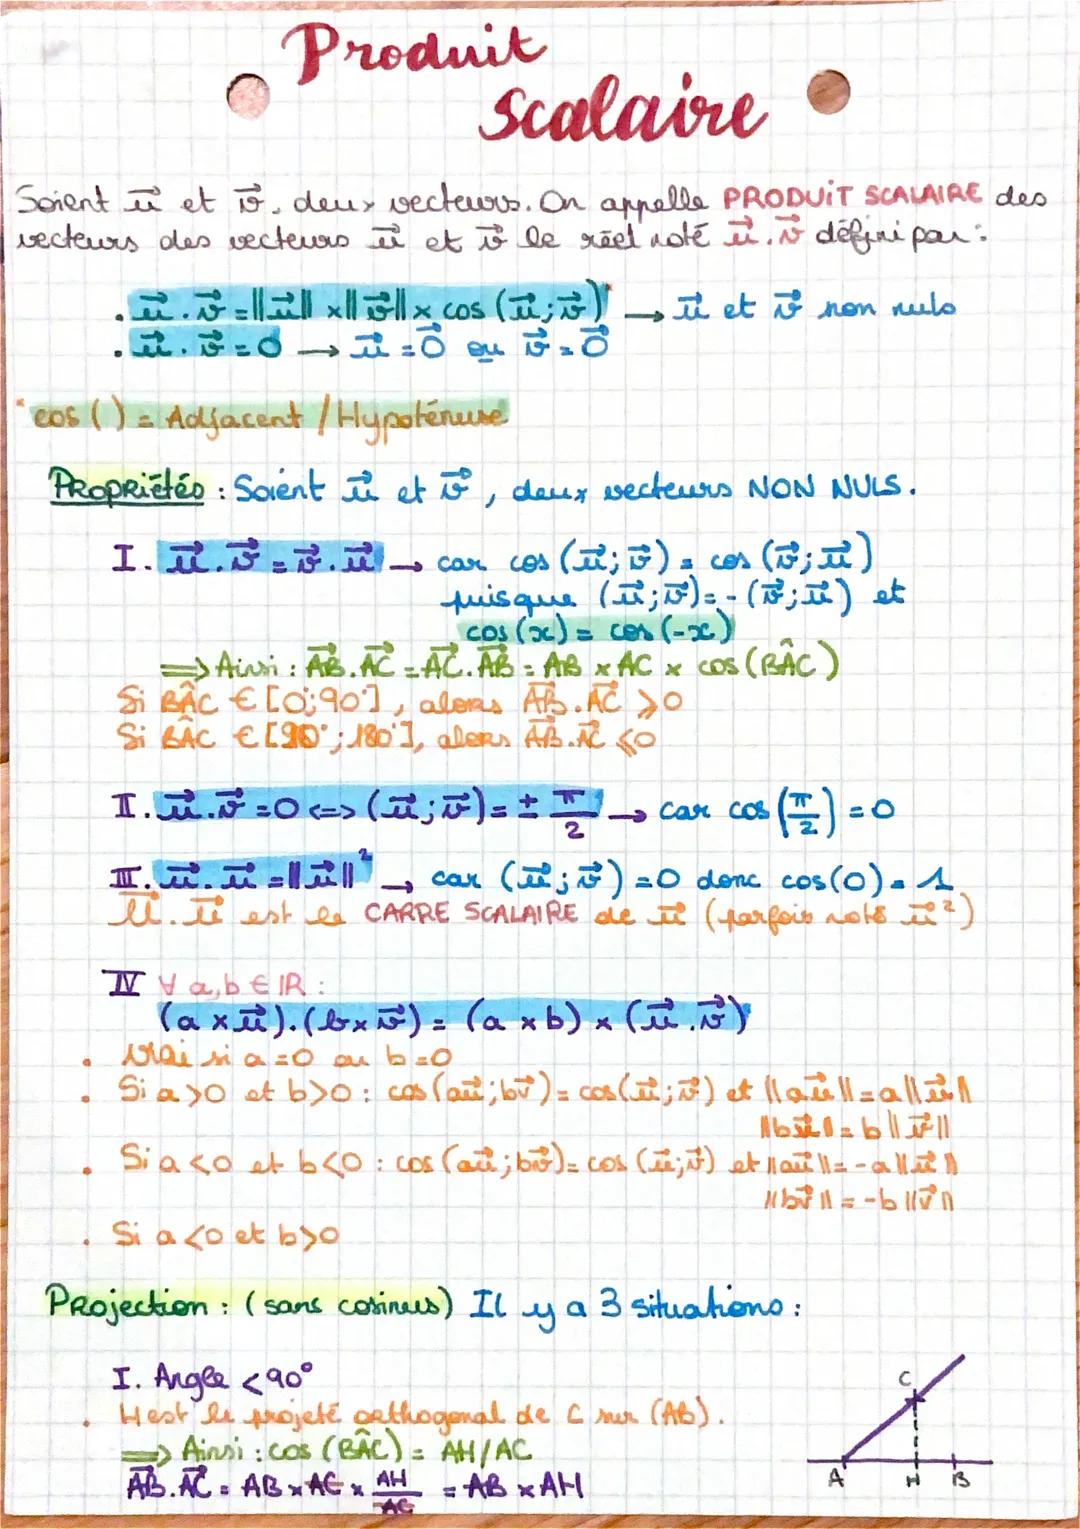 Produit
scalaire
Soient u⃗ et v⃗, deux vecteurs. On appelle PRODUIT SCALAIRE des
vecteurs des vecteurs u⃗ et v⃗ le réel noté u⃗.v⃗ défini par :
. u⃗.v⃗ = ||u⃗|| x ||v⃗|| x cos (u⃗;v⃗)* → u⃗ et v⃗ non nuls
. u⃗.v⃗ = 0 → u⃗ = 0⃗ ou v⃗ = 0⃗
* cos () = Adjacent / Hypoténuse
Propriétés : Soient u⃗ et v⃗, deux vecteurs NON NULS.
I. u⃗.v⃗ = v⃗.u⃗ → car cos (u⃗;v⃗) = cos (v⃗;u⃗)
puisque (u⃗;v⃗) = - (v⃗;u⃗) et
cos (x) = cos (-x)
⟹ Ainsi : AB⃗.AC⃗ = AC⃗.AB⃗ = AB x AC x cos (BÂC)
Si BÂC ∈ [0;90°], alors AB⃗.AC⃗ ⩾ 0
Si BÂC ∈ [90°;180°], alors AB⃗.AC⃗ ⩽ 0
II. u⃗.v⃗ = 0 <=> (u⃗;v⃗) = ± π/2 → car cos (π/2) = 0
III. u⃗.u⃗ = ||u⃗||² → car (u⃗;v⃗) = 0 donc cos(0) = 1
u⃗.u⃗ est le CARRE SCALAIRE de u⃗ (parfois noté u⃗²)
IV ∀ a,b ∈ IR :
(a x u⃗).(b x v⃗) = (a x b) x (u⃗.v⃗)
• vrai si a = 0 ou b = 0
• Si a > 0 et b > 0 : cos (au⃗;bv⃗) = cos (u⃗;v⃗) et ||au⃗|| = a||u⃗||
||bu⃗|| = b||v⃗||
• Si a < 0 et b < 0 : cos (au⃗;bv⃗) = cos (u⃗;v⃗) et ||au⃗|| = -a||u⃗||
||bv⃗|| = -b||v⃗||
. Si a < 0 et b > 0
Projection : (sans cosinus) Il y a 3 situations :
I. Angle < 90°
. H est le projeté orthogonal de C sur (AB).
⟹ Ainsi : cos (BÂC) = AH/AC
AB⃗.AC⃗ = AB x AC x AH/AC = AB x AH
C
A H B